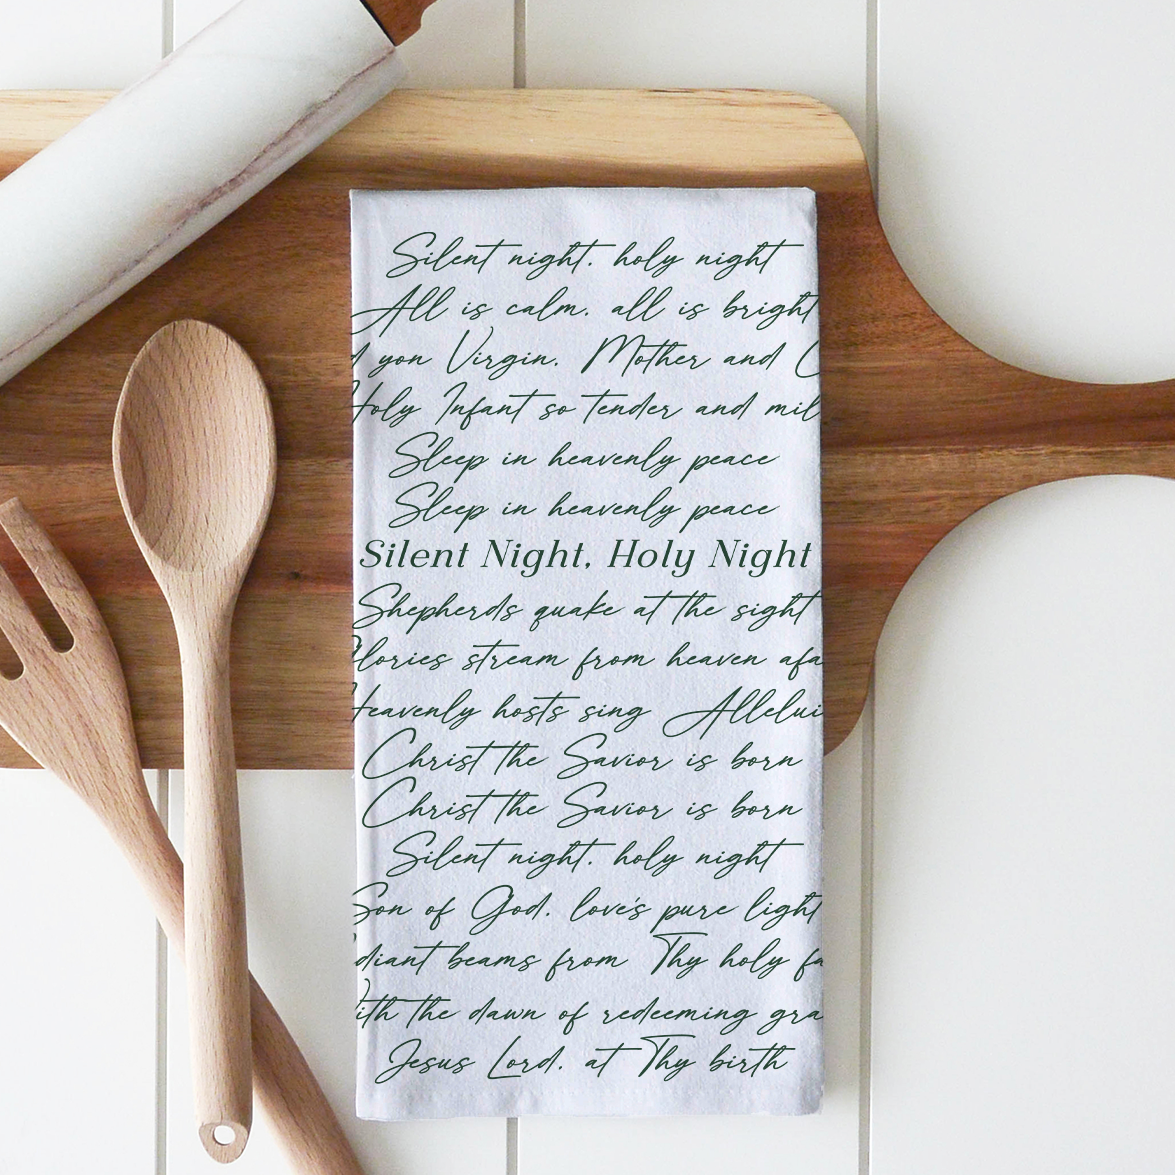 Silent night, holy night
All is calm, all is bright
d yon Virgin, Mother and C
Holy Infant so tender and mil
Sleep in heavenly peace
Sleep in heavenly peace
Silent Night, Holy Night
Shepherds quake at the sight
Glories stream from heaven afa
Heavenly hosts sing Allelui
Christ the Savior is born
Christ the Savior is born
Silent night, holy night
Son of God, love's pure light
diant beams from Thy holy fa
With the dawn of redeeming gra
Jesus Lord, at Thy birth